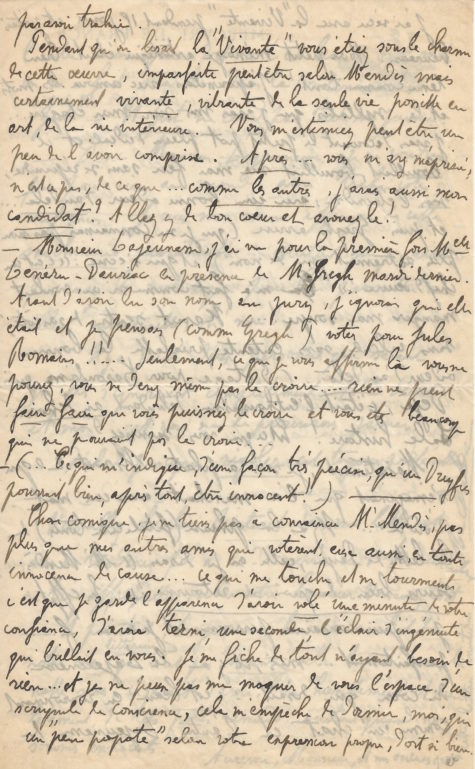 par avoir trahir.
Pendant qu'on lisait la "Vivante" vous étiez sous le charme
de cette œuvre, imparfaite peut être selon Mendès mais
certainement vivante, vibrante de la seule vie possible en
art, de la vie intérieure. Vous m'estimiez peut être un
peu de l'avoir comprise. Après... vous m'avez méprisé,
n'est ce pas, de ce que... comme les autres, j'avais aussi mon
candidat? Allez y de bon cœur et avouez le!
— Monsieur Lajeunesse, j'ai vu pour la première fois Melle
Lenéru-Dauriac en présence de Mr Gregh mardi dernier.
Avant d'avoir lu son nom au jury, j'ignorais qu'elle
était et je pensais (comme Gregh) voter pour Jules
Romains!!.... Seulement, ce que je vous affirme là vous ne
pouvez, vous ne devez même pas le croire.... rien ne peut
faire que vous puissiez le croire et vous êtes beaucoup
qui ne pouvant pas le croire
— (... Ce qui m'indigne d'une façon très précise, qu'un Dreyfus
pourrait bien après tout, être innocent!)
Chose comique, je ne tiens pas à convaincre Mr Mendès, pas
plus que mes autres amis qui votèrent, eux aussi, en toute
innocence de cause... ce qui me touche et me tourmente
c'est que je garde l'apparence d'avoir volé une minute de votre
confiance, d'avoir terni, une seconde l'éclair d'ingénuité
qui brillait en vous. Je me fiche de tout n'ayant besoin de
rien... et je ne peux pas me moquer de vous l'espace d'un
scrupule de conscience, cela m'empêche de dormir, moi, qui
un "peu popote" selon votre expression propre, dort si bien.